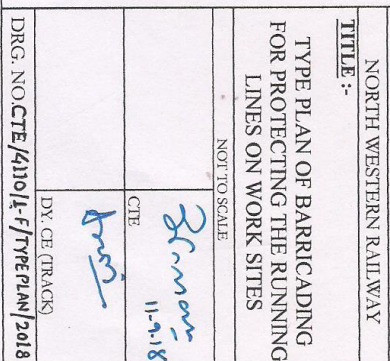 NORTH WESTERN RAILWAY
TITLE :-
TYPE PLAN OF BARRICADING
FOR PROTECTING THE RUNNING
LINES ON WORK SITES
NOT TO SCALE
11-9-18
CTE
DY. CE (TRACK)
DRG. NO.CTE/4110/1-F/TYPEPLAN/2018